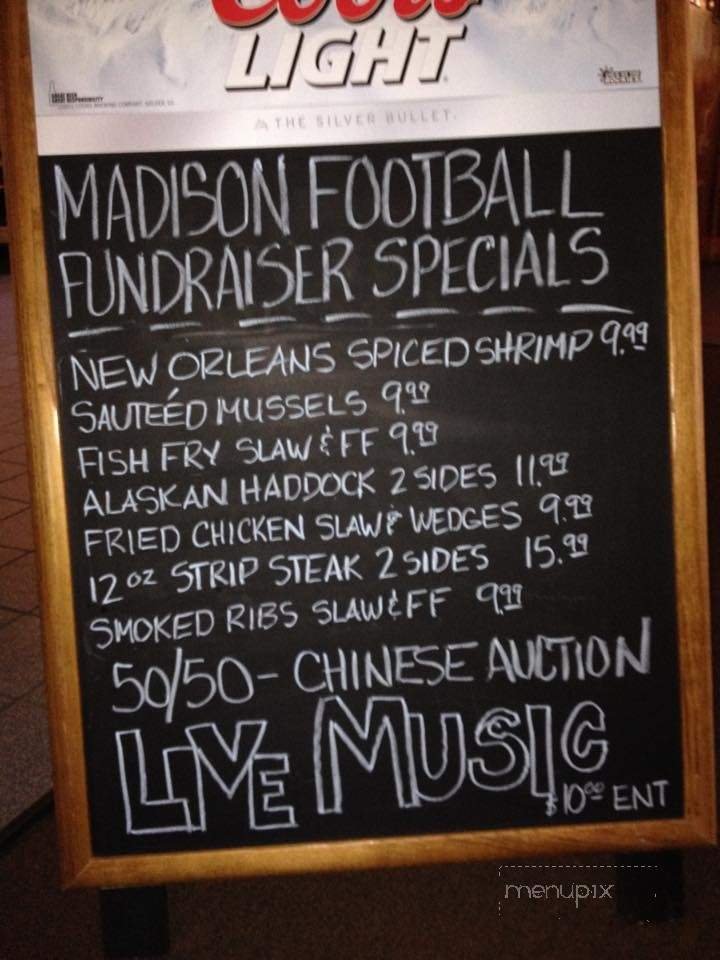 Coors
LIGHT
THE SILVER BULLET.
MADISON FOOTBALL
FUNDRAISER SPECIALS
NEW ORLEANS SPICED SHRIMP 9.99
SAUTEÉD MUSSELS 9.99
FISH FRY SLAW & FF 9.99
ALASKAN HADDOCK 2 SIDES 11.99
FRIED CHICKEN SLAW & WEDGES 9.99
12 OZ STRIP STEAK 2 SIDES 15.99
SMOKED RIBS SLAW & FF 9.99
50/50 - CHINESE AUCTION
LIVE MUSIC
$10.00 ENT
menupix